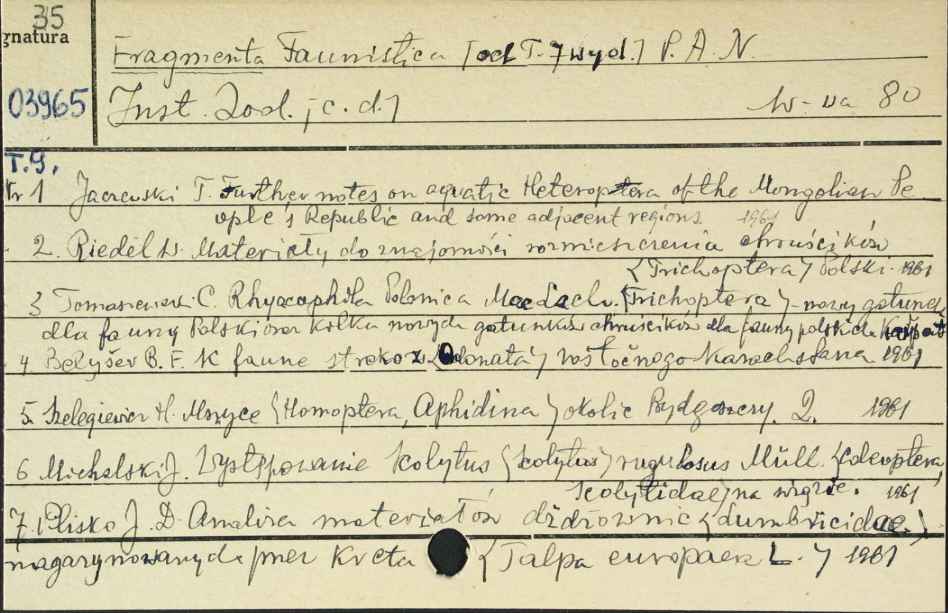 35
gnatura
Fragmenta Faunistica [od T. 7 wyd.] P. A. N.
03965 Inst. Zool. ; c. d.] W-wa 80
T. 9.
Nr 1 Jaczewski T. Further notes on aquatic Heteroptera of the Mongolian Pe
ople's Republic and some adjacent regions 1961
2. Riedel W. Materiały do znajomości rozmieszczenia chruścików
(Trichoptera) Polski. 1961
3 Tomaszewski C. Rhyacophila Polonica MacLach. (Trichoptera) - nowy gatunek
dla fauny Polski oraz kilka nowych gatunków chruścików dla fauny polskich Karpat
4 Belyšev B. F. K faune strekoz (Odonata) vostočnogo Kazachstana 1961
5. Szelegiewicz H. Mszyce (Homoptera, Aphidina) okolic Bydgoszczy. 2. 1961
6 Michalski J. Występowanie Scolytus (Scolytus) rugulosus Müll. (Coleoptera,
Scolytidae) na wiązie. 1961
7. Plisko J. D. Analiza materiałów dżdżownic (Lumbricidae.)
magazynowanych przez kreta (Talpa europaea L.) 1961